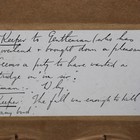 Keeper to Gentleman (who has
and brought down a pleasa
Seems a pity to have wasted a
tridge on 'im sir".
: Why.
Keeper: The fall was enough to kill
any bird".